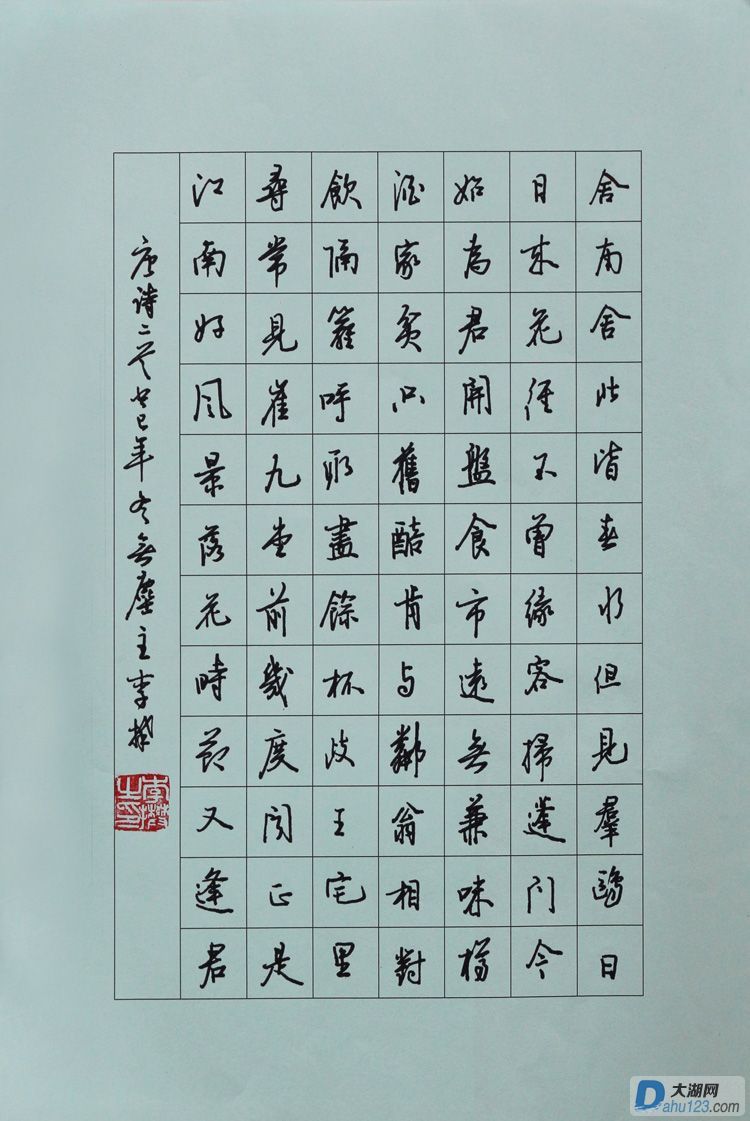 舍南舍北皆春水但見羣鷗日
日來花徑不曾緣客掃蓬門今
始為君開盤食市遠無兼味樽
酒家貧只舊醅肯與鄰翁相對
飲隔籬呼取盡餘杯歧王宅里
尋常見崔九堂前幾度聞正是
江南好風景落花時節又逢君
唐詩二首癸巳年冬無塵主李
大湖网
Dahu123.com